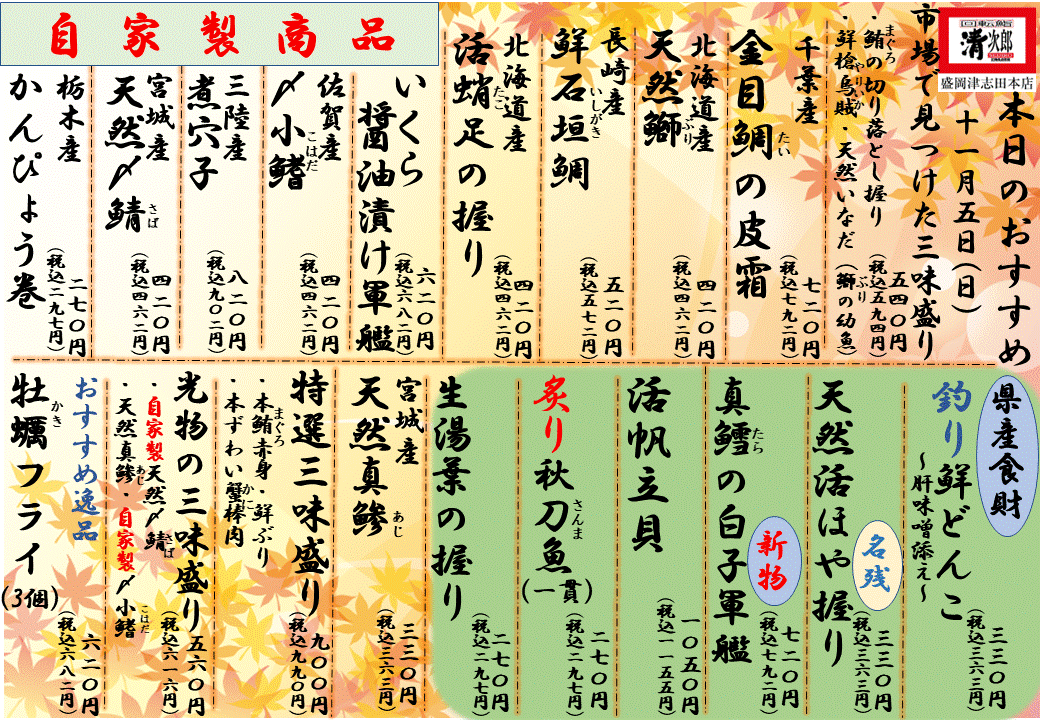 回転鮨
清次郎
盛岡津志田本店
本日のおすすめ
十一月五日(日)
市場で見つけた三味盛り
・鮪の切り落とし握り
まぐろ
・鮮槍烏賊・天然いなだ(鰤の幼魚)
やりいか
ぶり
五四〇円
(税込五九四円)
千葉産
金目鯛の皮霜
たい
七二〇円
(税込七九二円)
北海道産
天然鰤
ぶり
四二〇円
(税込四六二円)
長崎産
鮮石垣鯛
いしがき
五二〇円
(税込五七二円)
北海道産
活蛸足の握り
たこ
四二〇円
(税込四六二円)
自家製商品
いくら
醤油漬け軍艦
六二〇円
(税込六八二円)
佐賀産
〆小鰭
こはだ
四二〇円
(税込四六二円)
三陸産
煮穴子
八二〇円
(税込九〇二円)
宮城産
天然〆鯖
さば
四二〇円
(税込四六二円)
栃木産
かんぴょう巻
二七〇円
(税込二九七円)
県産食財
釣り鮮どんこ
~肝味噌添え~
三三〇円
(税込三六三円)
天然活ほや握り
名残
三三〇円
(税込三六三円)
真鱈の白子軍艦
たら
新物
七二〇円
(税込七九二円)
活帆立貝
一〇五〇円
(税込一一五五円)
炙り秋刀魚(一貫)
さんま
二七〇円
(税込二九七円)
生湯葉の握り
二七〇円
(税込二九七円)
宮城産
天然真鯵
あじ
三三〇円
(税込三六三円)
特選三味盛り
・本鮪赤身・鮮ぶり
まぐろ
・本ずわい蟹棒肉
かに
九〇〇円
(税込九九〇円)
光物の三味盛り
・自家製天然〆鯖
さば
・天然真鯵・自家製〆小鰭
あじ
こはだ
五六〇円
(税込六一六円)
おすすめ逸品
牡蠣フライ(3個)
かき
六二〇円
(税込六八二円)